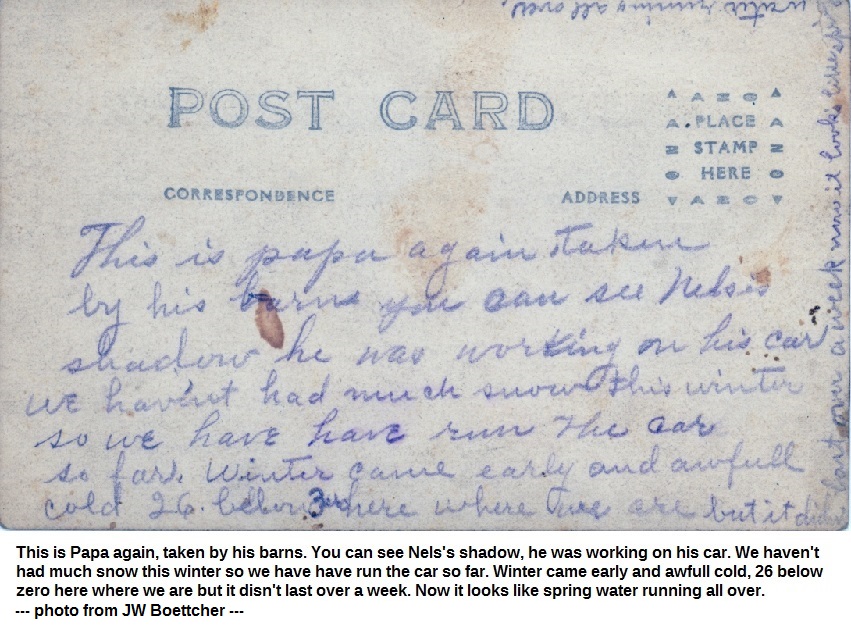 POST CARD
PLACE
STAMP
HERE
CORRESPONDENCE
ADDRESS
This is papa again taken
by his barns you can see Nels's
shadow he was working on his car
we havent had much snow this winter
so we have have run the car
so far. Winter came early and awfull
cold 26. below zero here where we are but it didn't
last over a week now it looks like spring
water running all over.
This is Papa again, taken by his barns. You can see Nels's shadow, he was working on his car. We haven't
had much snow this winter so we have have run the car so far. Winter came early and awfull cold, 26 below
zero here where we are but it disn't last over a week. Now it looks like spring water running all over.
--- photo from JW Boettcher ---